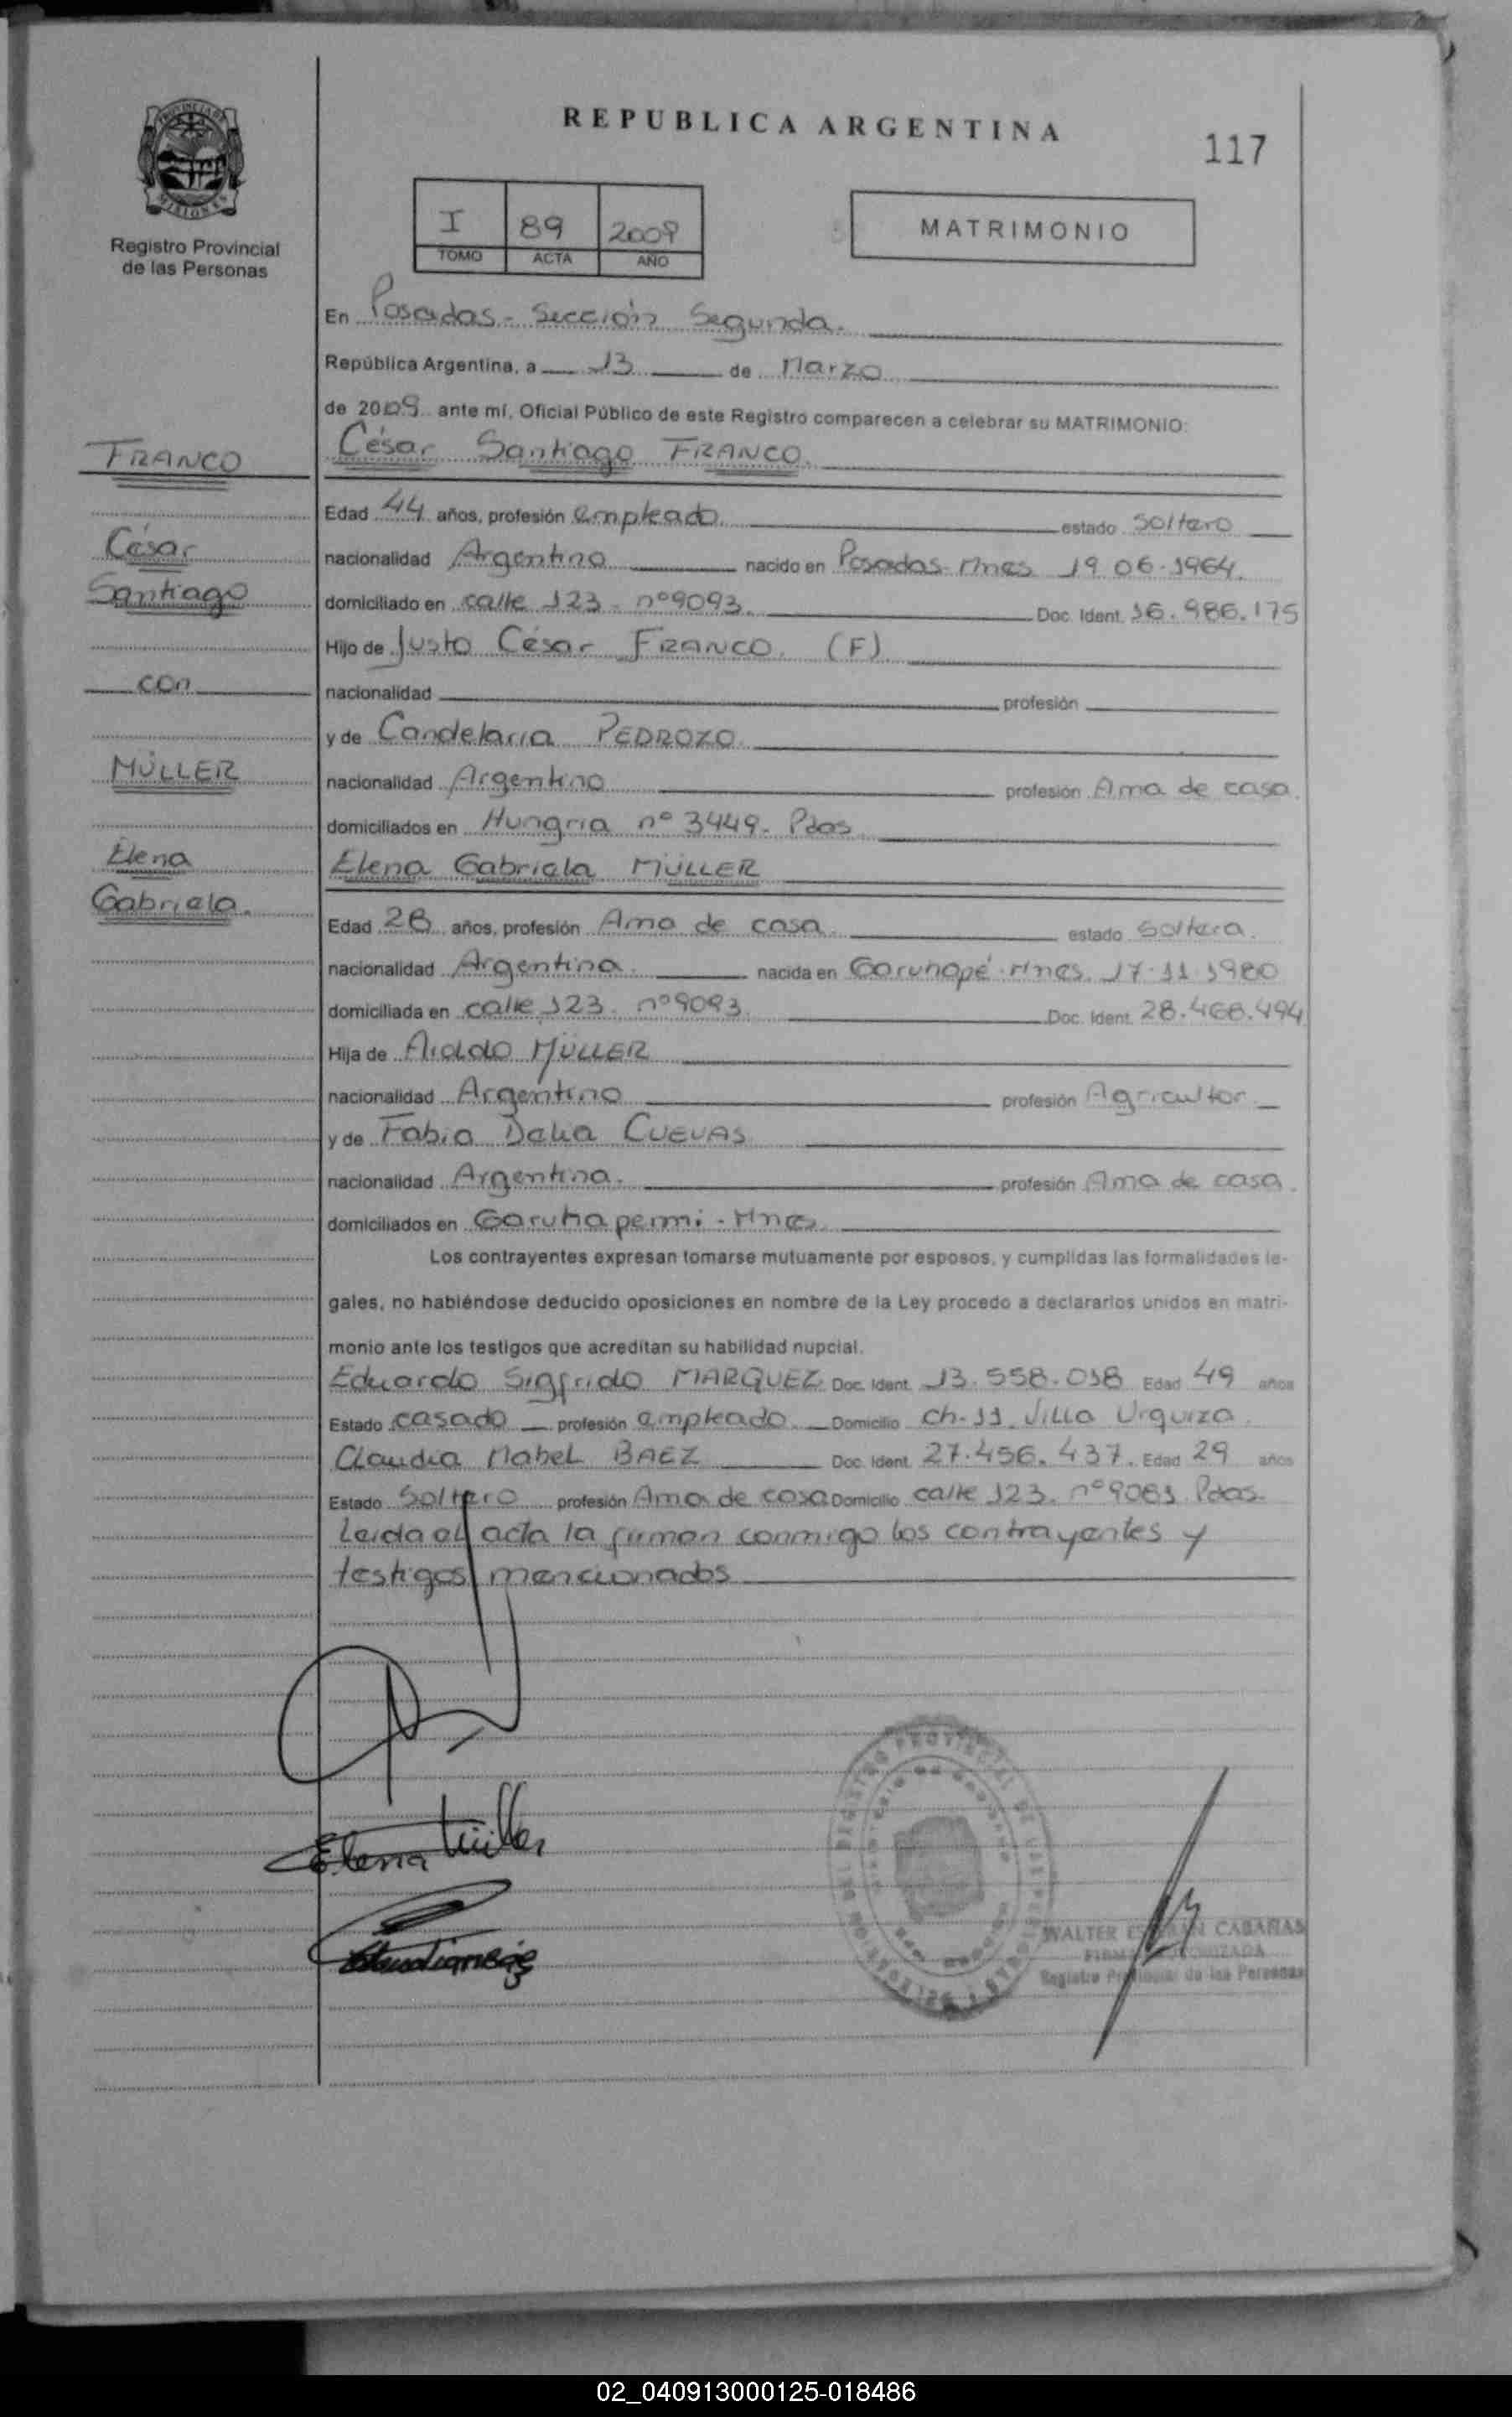 REPUBLICA ARGENTINA
117
PROVINCIA DE
MISIONES
Registro Provincial
de las Personas
I 89 2009
TOMO ACTA AÑO
MATRIMONIO
En Posadas - Sección Segunda.
República Argentina, a 13 de Marzo
de 2009 ante mí, Oficial Público de este Registro comparecen a celebrar su MATRIMONIO:
FRANCO
César Santiago FRANCO.
Edad 44 años, profesión empleado. estado Soltero
César
nacionalidad Argentino nacido en Posadas-Mnes 19.06.1964.
Santiago
domiciliado en calle 123 - nº9093. Doc. Ident. 16.986.175
Hijo de Justo César FRANCO. (F)
con
nacionalidad profesión
y de Candelaria PEDROZO.
MÜLLER
nacionalidad Argentino profesión Ama de casa.
domiciliados en Hungria nº 3449. Pdas
Elena
Elena Gabriela MÜLLER
Gabriela.
Edad 28 años, profesión Ama de casa. estado Soltera.
nacionalidad Argentina. nacida en Garuhapé-Mnes. 17.11.1980
domiciliada en calle 123. nº9093. Doc. Ident. 28.468.494
Hija de MÜLLER
nacionalidad Argentino profesión Agricultor
y de Fabia Delia CUEVAS
nacionalidad Argentina. profesión Ama de casa.
domiciliados en Garuhapemi - Mnes.
Los contrayentes expresan tomarse mutuamente por esposos, y cumplidas las formalidades le-
gales, no habiéndose deducido oposiciones en nombre de la Ley procedo a declararlos unidos en matri-
monio ante los testigos que acreditan su habilidad nupcial.
Eduardo Sigfrido MARQUEZ Doc. Ident. 13.558.038 Edad 49 años
Estado casado profesión empleado. Domicilio Ch. 11. Villa Urquiza.
Claudia Mabel BAEZ Doc. Ident. 27.456.437. Edad 29 años
Estado Soltero profesión Ama de casa Domicilio calle 123. nº9083. Pdas.
Leida el acta la firman conmigo los contrayentes y
testigos mencionados
Elena Müller
WALTER CABAÑAS
FIRMA AUTORIZADA
Registro Provincial de las Personas
02_040913000125-018486